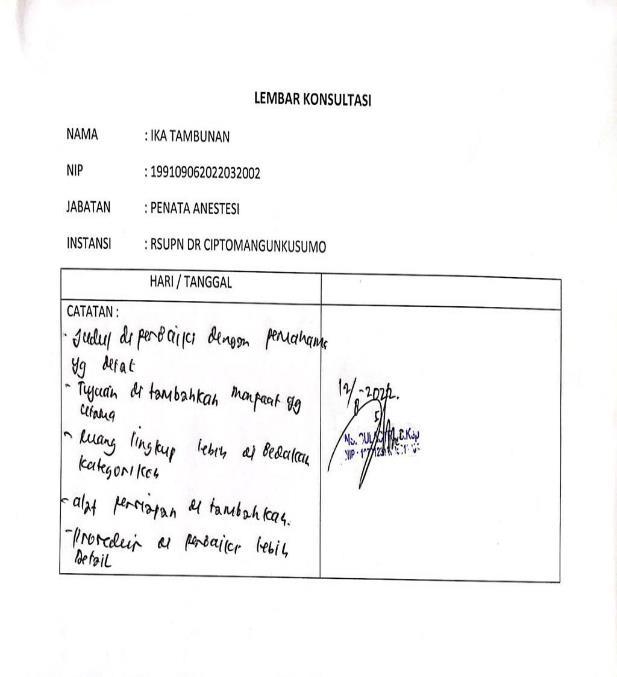 LEMBAR KONSULTASI
NAMA : IKA TAMBUNAN
NIP : 199109062022032002
JABATAN : PENATA ANESTESI
INSTANSI : RSUPN DR CIPTOMANGUNKUSUMO
HARI / TANGGAL
CATATAN :
- Judul di perbaiki dengan
yg
- Tujuan di tambahkan manfaat yg
- Ruang lingkup lebih di bedakan
kategorikan
- alat persiapan di tambahkan.
- Prosedur di perbaiki lebih
Detail
12/ -2022.
Ns.
NIP